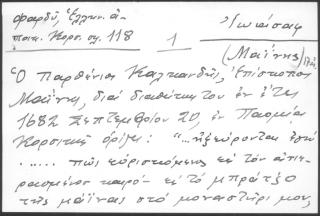 φαρδύ, Ἑλλην. ἀ-
ποικ. Κορσ. σελ. 118
1
Ἰωάσαφ
(Μαΐνης)
Ὁ Παρθένιος Καλκανδῆς, Ἐπίσκοπος
Μαΐνης, διά διαθήκης του ἐν ἔτει
1682 Σεπτεμβρίου 20, ἐν Παομίᾳ
Κορσικῆς ὁρίζει: "...ἠξεύροντας ἐγώ
...... πῶς εὑρισκόμενος εἰς τόν ἀπε-
ρασμένον καιρό- εἰς τό μπράτζο
τῆς μάϊνας στό μοναστῆρι μου,